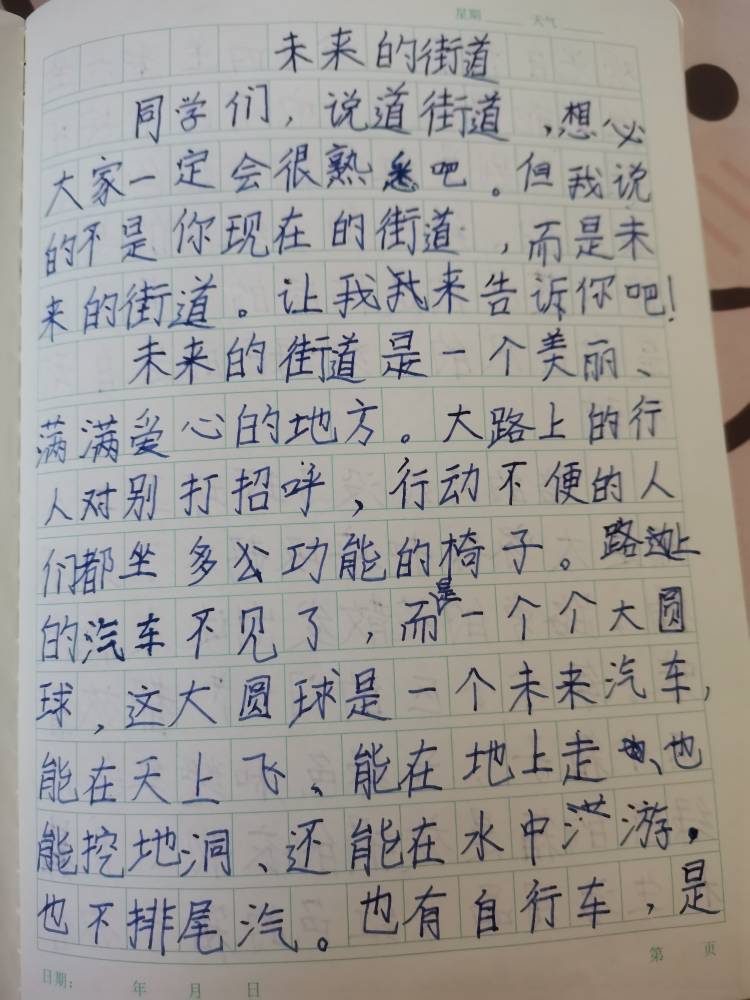 星期 天气
未来的街道
同学们，说道街道，想必
大家一定会很熟悉吧。但我说
的不是你现在的街道，而是未
来的街道。让我我来告诉你吧！
未来的街道是一个美丽、
满满爱心的地方。大路上的行
人对别打招呼，行动不便的人
们都坐多公功能的椅子。路边上
的汽车不见了，而是一个个大圆
球，这大圆球是一个未来汽车，
能在天上飞、能在地上走、也
能挖地洞、还能在水中游，
也不排尾汽。也有自行车，是
日期： 年 月 日 第 页